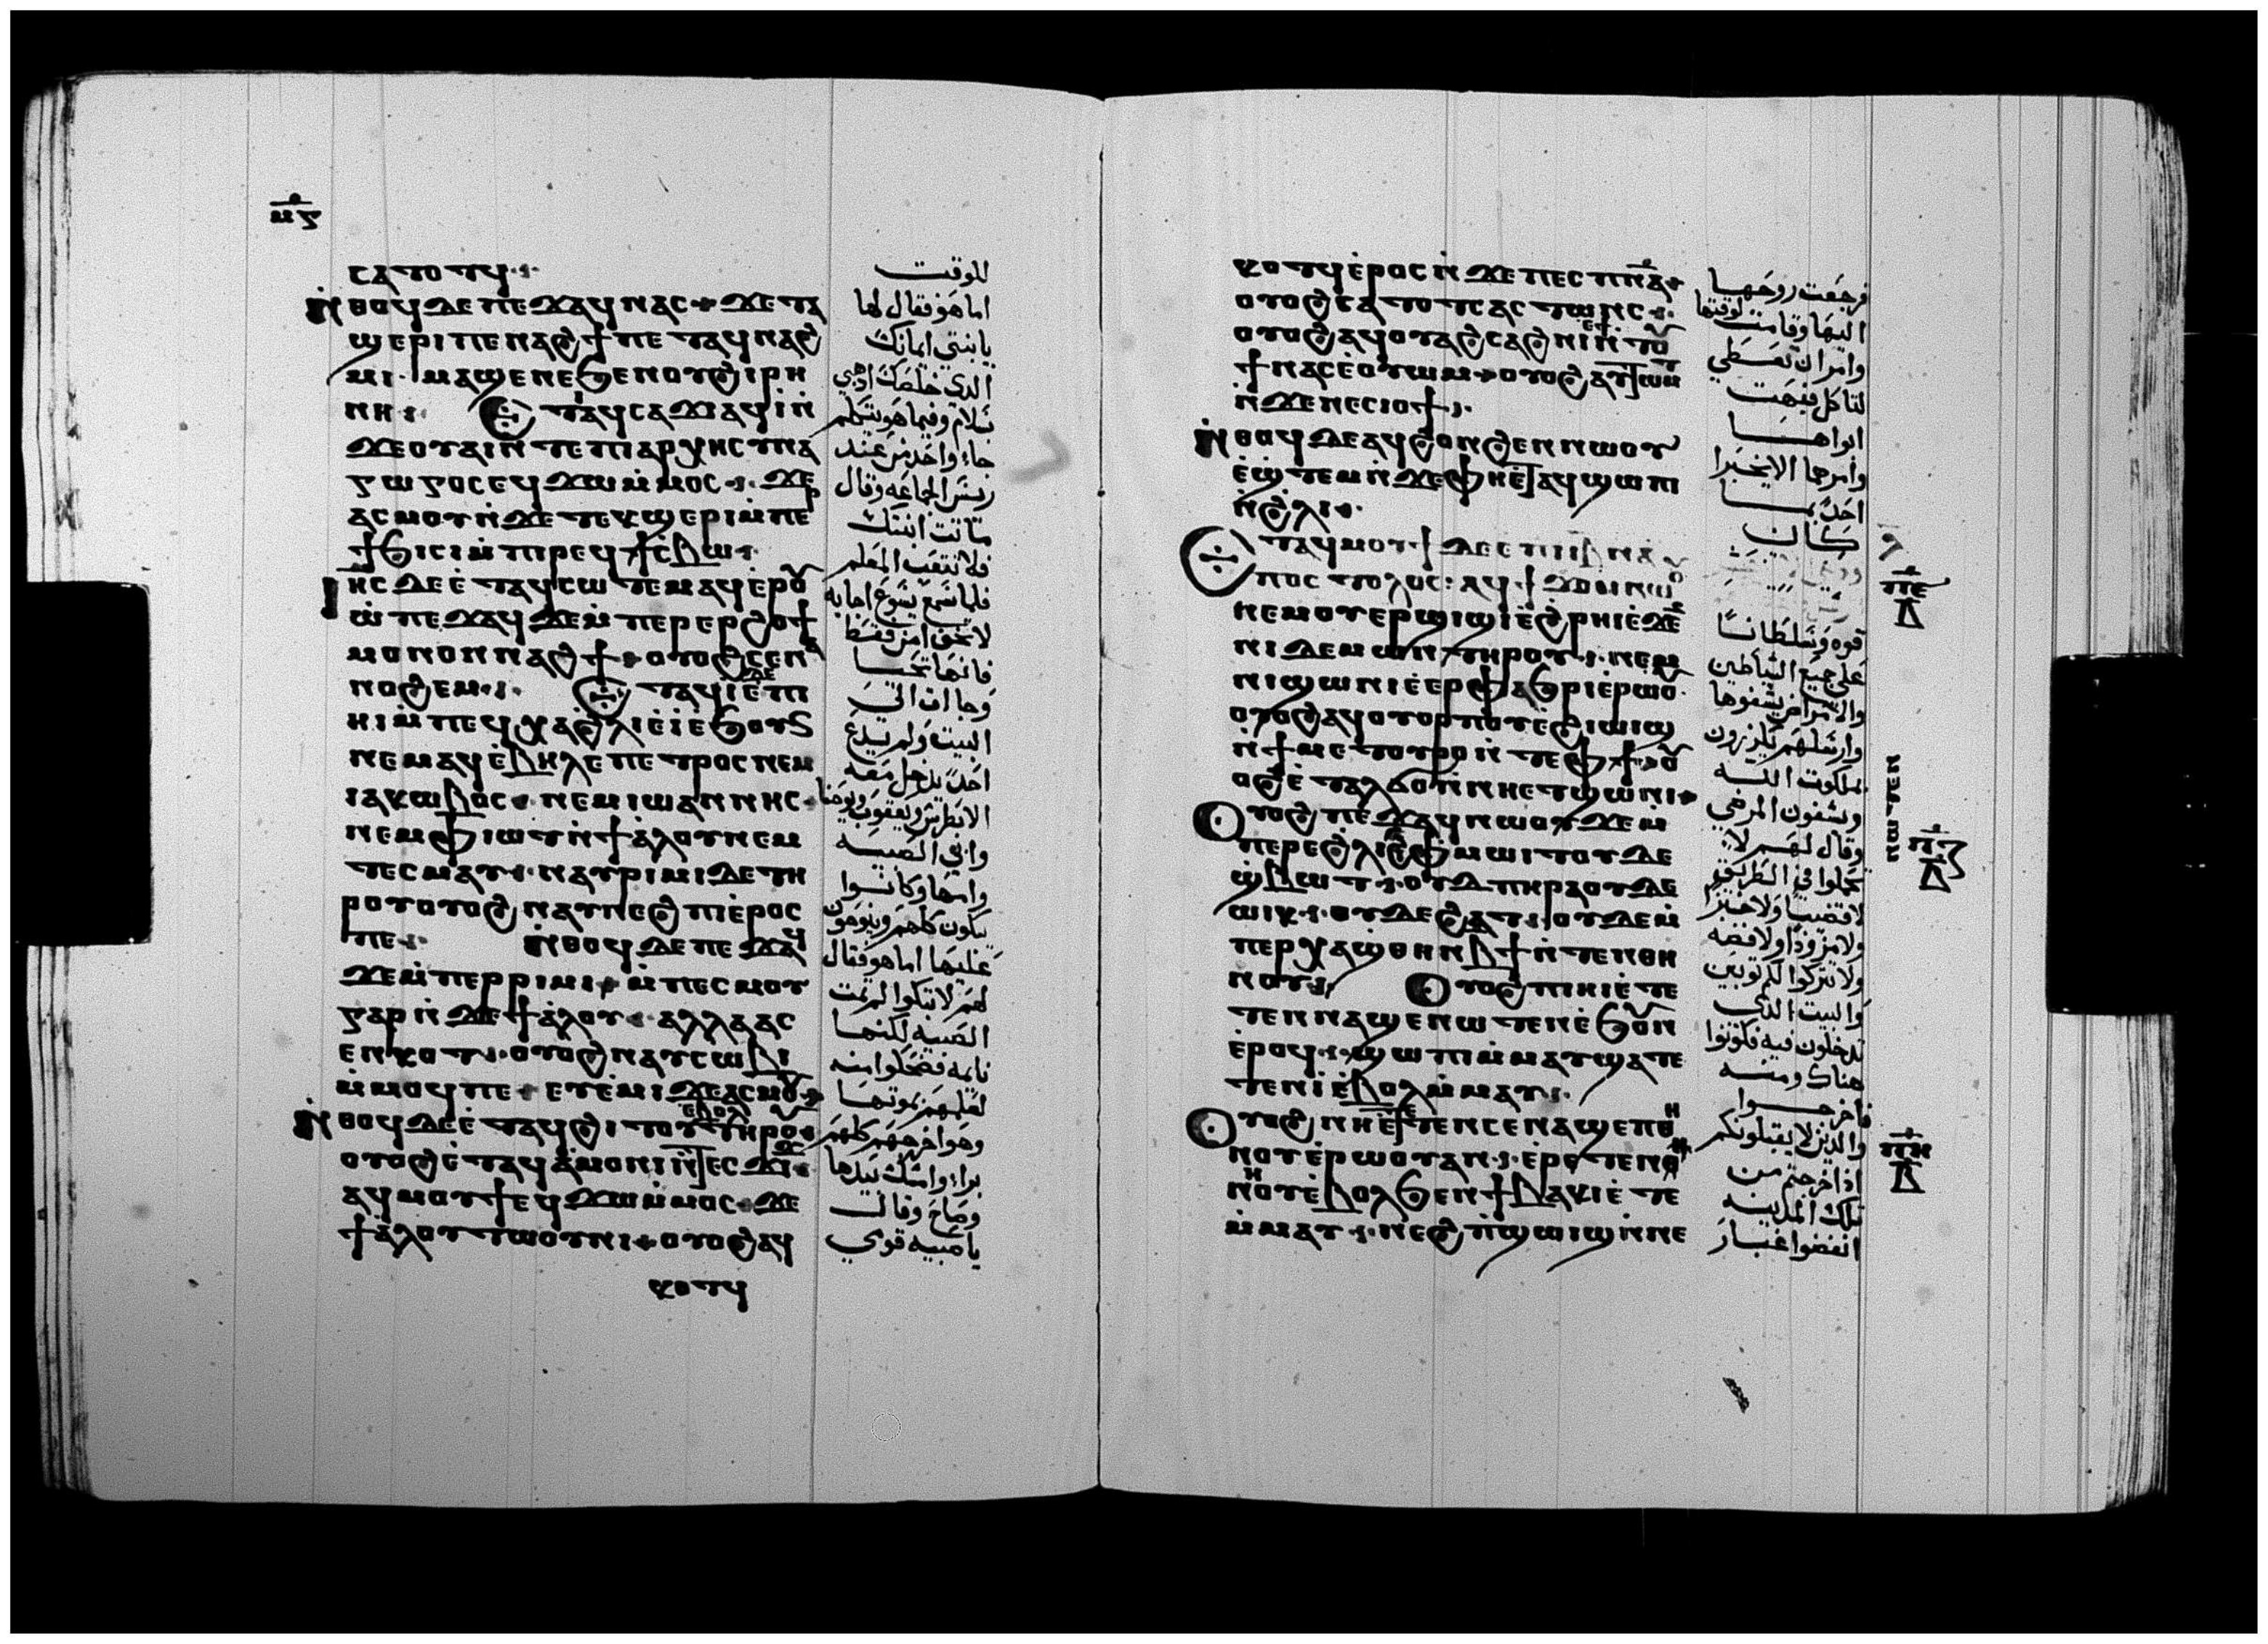 ⲙ̅ⲋ̅
ⲥⲁⲧⲟⲧϥ
ⲛ̇ⲑⲟϥ ⲇⲉ ⲡⲉϫⲁϥ ⲛⲁⲥ ϫⲉ ⲧⲁ
ϣⲉⲣⲓ ⲡⲉⲛⲁϩϯ ⲡⲉⲧⲁϥⲛⲁϩ
ⲙⲓ ⲙⲁϣⲉ ⲛⲉ ϧⲉⲛ ⲟⲩϩⲓⲣⲏ
ⲛⲏ ⲉⲧⲁϥⲥⲁϫⲓ ⲁϥⲓ̀ ⲛ̇
ϫⲉ ⲟⲩⲁⲓ ⲛ̇ⲧⲉ ⲡⲓⲁⲣⲭⲏⲥⲩⲛⲁ
ⲅⲱⲅⲟⲥ ⲉϥϫⲱ ⲙ̇ⲙⲟⲥ ϫⲉ
ⲁⲥⲙⲟⲩ ⲛ̇ϫⲉ ⲧⲉⲕϣⲉⲣⲓ ⲙ̇ⲡⲉⲣ
ϯϧⲓⲥⲓ ⲙ̇ⲡⲓⲣⲉϥϯⲥⲃⲱ
ⲓⲏⲥ ⲇⲉ ⲉ̇ⲧⲁϥⲥⲱⲧⲉⲙ ⲁϥⲉ̇ⲣⲟⲩ
ⲱ̇ ⲡⲉϫⲁϥ ϫⲉ ⲙ̇ⲡⲉⲣⲉⲣϩⲟϯ
ⲙⲟⲛⲟⲛ ⲛⲁϩϯ ⲟⲩⲟϩ ⲥⲉⲛⲁ
ⲛⲟϩⲉⲙ ⲉⲧⲁϥⲓ̀ ⲇⲉ ⲉ̇ⲡⲓ
ⲏⲓ ⲙ̇ⲡⲉϥⲭⲁ ϩ̇ⲗⲓ ⲉ̇ⲓ̀ ⲉ̇ϧⲟⲩⲛ
ⲛⲉⲙⲁϥ ⲉ̇ⲃⲏⲗ ⲉⲡⲉⲧⲣⲟⲥ ⲛⲉⲙ
ⲓⲁⲕⲱⲃⲟⲥ ⲛⲉⲙ ⲓⲱⲁⲛⲛⲏⲥ
ⲛⲉⲙ ⲫⲓⲱⲧ ⲛ̇ϯⲁ̇ⲗⲟⲩ ⲛⲉⲙ
ⲧⲉⲥⲙⲁⲩ ⲛⲁⲩⲣⲓⲙⲓ ⲇⲉ ⲧⲏ
ⲣⲟⲩ ⲟⲩⲟϩ ⲛⲁⲩⲛⲉϩⲡⲓ ⲉ̇ⲣⲟⲥ
ⲡⲉ ⲛ̇ⲑⲟϥ ⲇⲉ ⲡⲉϫⲁϥ
ϫⲉ ⲙ̇ⲡⲉⲣⲣⲓⲙⲓ ⲙ̇ⲡⲉⲥⲙⲟⲩ
ⲅⲁⲣ ⲛ̇ϫⲉ ϯⲁ̇ⲗⲟⲩ ⲁⲗⲗⲁ ⲁⲥ
ⲉⲛⲕⲟⲧ ⲟⲩⲟϩ ⲛⲁⲩⲥⲱⲃⲓ
ⲙ̇ⲙⲟϥ ⲡⲉ ⲉⲩⲉ̇ⲙⲓ ϫⲉ ⲁⲥⲙⲟⲩ
ⲛ̇ⲑⲟϥ ⲇⲉ ⲉ̇ⲧⲁϥϩⲓⲧⲟⲩ ⲉⲃⲟⲗ ⲧⲏⲣⲟⲩ
ⲟⲩⲟϩ ⲉ̇ⲧⲁϥⲁ̇ⲙⲟⲛⲓ ⲛ̇ⲧⲉⲥϫⲓϫ
ⲁϥⲙⲟⲩϯ ⲉϥϫⲱ ⲙ̇ⲙⲟⲥ ϫⲉ
ϯⲁ̇ⲗⲟⲩ ⲧⲱⲟⲩⲛⲓ ⲟⲩⲟϩ ⲁϥ
ⲕⲟⲧϥ
للوقت
اما هو فقال لها
يا بنتي ايمانك
الذي خلصك اذهبي
بسلام وفيما هو يتكلم
جاء واحد من عند
رييس الجماعه وقال
ماتت ابنتك
فلا تتعب المعلم
فلما سمع يسوع اجابه
لا تخف امن فقط
فانها تحيا
وجا الى
البيت ولم يدع
احدا يدخل معه
الا بطرس ويعقوب ويوحنا
وابي الصبيه
وامها وكانوا
يبكون كلهم وينوحون
عليها اما هو فقال
لهم لا تبكوا لم تمت
الصبيه لكنها
نايمه فضحكوا منه
لعلمهم بموتها
وهو اخرجهم كلهم
برا وامسك بيدها
وصاح وقال
يا صبيه قومي
ⲕⲟⲧϥ ⲉ̇ⲣⲟⲥ ⲛ̇ϫⲉ ⲡⲉⲥⲡⲛⲁ
ⲟⲩⲟϩ ⲥⲁⲧⲟⲧⲥ ⲁⲥⲧⲱⲛⲥ
ⲟⲩⲟϩ ⲁϥⲟⲩⲁϩⲥⲁϩⲛⲓ ⲉ̇ⲧⲟⲩ
ϯ ⲛⲁⲥ ⲉ̇ⲟⲩⲱⲙ ⲟⲩⲟϩ ⲁⲩⲧⲱⲙⲧ
ⲛ̇ϫⲉ ⲛⲉⲥⲓⲟϯ
ⲛ̇ⲑⲟϥ ⲇⲉ ⲁϥϩⲟⲛϩⲉⲛ ⲛⲱⲟⲩ
ⲉ̇ϣ̇ⲧⲉⲙ ϫⲉ ⲫⲏ ⲉ̇ⲧⲁϥϣⲱⲡⲓ
ⲛ̇ϩ̇ⲗⲓ
ⲉⲧⲁϥⲙⲟⲩϯ ⲇⲉ ⲉ̇ⲡⲓⲓⲃ ⲛ̇ⲁ
ⲡⲟⲥⲧⲟⲗⲟⲥ ⲁϥϯ ϫⲟⲙ ⲛⲱⲟⲩ
ⲛⲉⲙ ⲟⲩⲉⲣϣⲓϣⲓ ⲉ̇ϩⲣⲏⲓ ⲉ̇ϫⲉⲛ
ⲛⲓⲇⲉⲙⲱⲛ ⲧⲏⲣⲟⲩ ⲛⲉⲙ
ⲛⲓϣⲱⲛⲓ ⲉ̇ⲉⲣⲫⲁϧⲣⲓ ⲉ̇ⲣⲱⲟⲩ
ⲟⲩⲟϩ ⲁϥⲟⲩⲟⲣⲡⲟⲩ ⲉϩⲓⲱⲓϣ
ⲛ̇ϯⲙⲉⲧⲟⲩⲣⲟ ⲛ̇ⲧⲉ ⲫϯ ⲟⲩ
ⲟϩ ⲉ̇ⲧⲁⲗϭⲟ ⲛ̇ⲛⲏⲉⲧϣⲱⲛⲓ
ⲟⲩⲟϩ ⲡⲉϫⲁϥ ⲛⲱⲟⲩ ϫⲉ ⲙ̇
ⲡⲉⲣⲉⲗ ϩ̇ⲗⲓ ⲉ̇ⲫⲙⲱⲓⲧ ⲟⲩⲇⲉ
ϣ̇ⲃⲱⲧ ⲟⲩⲇⲉ ⲡⲏⲣⲁ ⲟⲩⲇⲉ
ⲱⲓⲕ ⲟⲩⲇⲉ ϩⲁⲧ ⲟⲩⲇⲉ ⲙ̇
ⲡⲉⲣⲭⲁ ϣ̇ⲑⲏⲛ ⲃϯ ⲛ̇ⲧⲉⲛ ⲑⲏ
ⲛⲟⲩ ⲟⲩⲟϩ ⲡⲓⲏⲓ ⲉ̇ⲧⲉ
ⲧⲉⲛⲛⲁϣⲉ ⲛⲱⲧⲉⲛ ⲉ̇ϧⲟⲩⲛ
ⲉ̇ⲣⲟϥ ϣⲱⲡⲓ ⲙ̇ⲙⲁⲩ ϣⲁⲧⲉ
ⲧⲉⲛⲓ̀ ⲉ̇ⲃⲟⲗ ⲙ̇ⲙⲁⲩ
ⲟⲩⲟϩ ⲛⲏ ⲉ̇ⲧⲉⲛⲥⲉⲛⲁϣⲉⲡ ⲑⲏ
ⲛⲟⲩ ⲉ̇ⲣⲱⲟⲩ ⲁⲛ ⲉ̇ⲣⲉⲧⲉⲛⲛⲏ
ⲛⲟⲩ ⲉ̇ⲃⲟⲗ ϧⲉⲛ ϯⲃⲁⲕⲓ ⲉ̇ⲧⲉ
ⲙ̇ⲙⲁⲩ ⲛⲉϩ ⲡ̇ϣⲱⲓϣ ⲛ̇ⲛⲉ
فرجعت روحها
اليها وقامت لوقتها
وامر ان تعطي
لتاكل فبهت
ابواها
وامرهما الا يخبرا
احدا بما
كان
قوه وسلطانا
على جميع الشياطين
والامراض يشفوها
وارسلهم يكرزون
بملكوت الله
ويشفون المرضي
وقال لهم لا
تحملوا في الطريق
لا قضيبا ولا خبزا
ولا مزودا ولا فضه
ولا تتركوا لكم ثوبين
والبيت الذي
تدخلون فيه فكونوا
هناك ومنه
فاخرجوا
والذين لا يقبلونكم
اذا خرجتم من
تلك المدينه
انفضوا غبار
ⲡ̅ⲉ̅
ⲡ̅ⲋ̅
ⲡ̅ⲏ̅